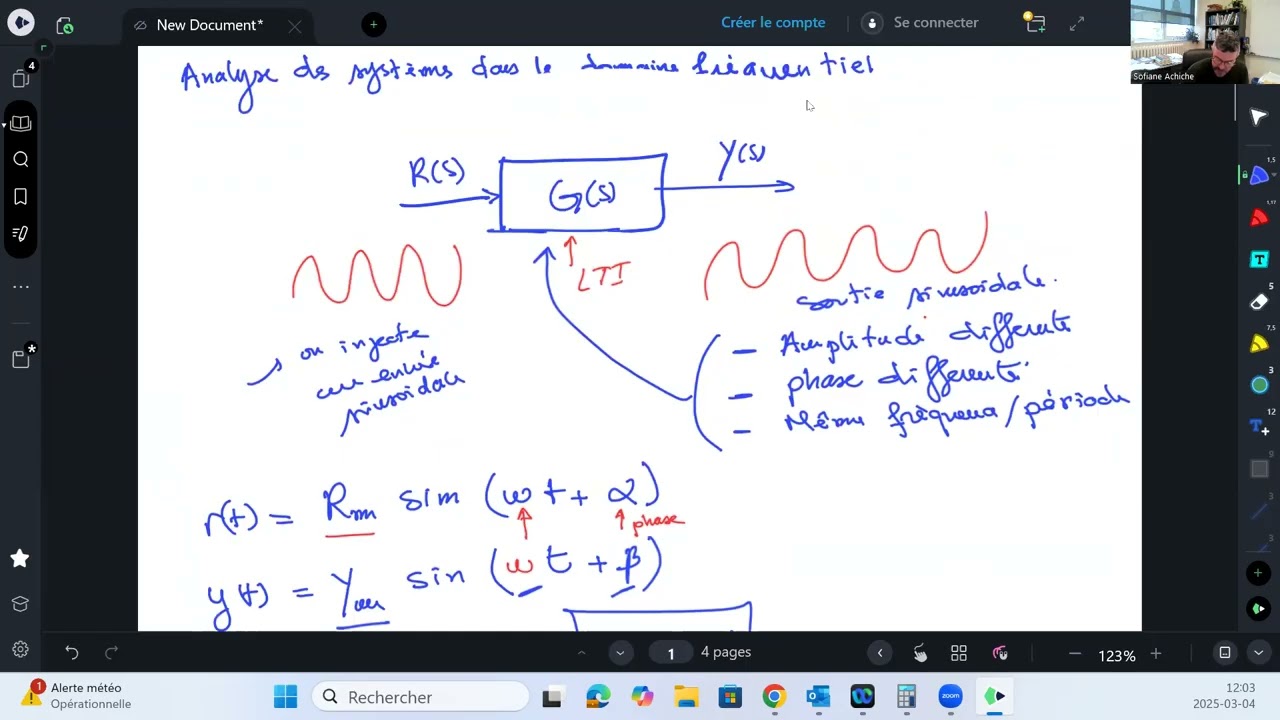 New Document*
Créer le compte
Se connecter
Sofiane Achiche
4
Analyse des systèms dans le domaine fréquentiel
R(s)
G(s)
Y(s)
LTI
on injecte
une entrée
sinusoidale
sortie sinusoidale.
- Amplitude differente
- phase differente
- Même fréquence/période
r(t) = Rm sin (ωt + α)
phase
y(t) = Ym sin (ωt + β)
1,5
1,17
T
7,5
3
12
T+
9
3
3
1
4 pages
123%
1
Alerte météo
Opérationnelle
Rechercher
zoom
12:03
2025-03-04